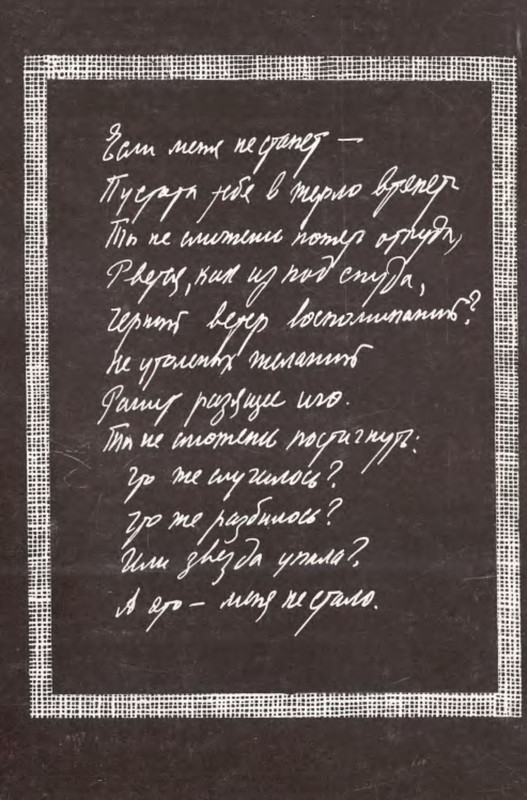 Если меня не станет —
Пустота тебя в жерло втянет
Ты не сможешь понять откуда,
Рвется, как из под спуда,
Черный ветер воспоминаний?
Не утоленых желаний
Ранит разящее иго.
Ты не сможешь постигнуть:
Что же случилось?
Что же разбилось?
Или звезда упала?
А это — меня не стало.